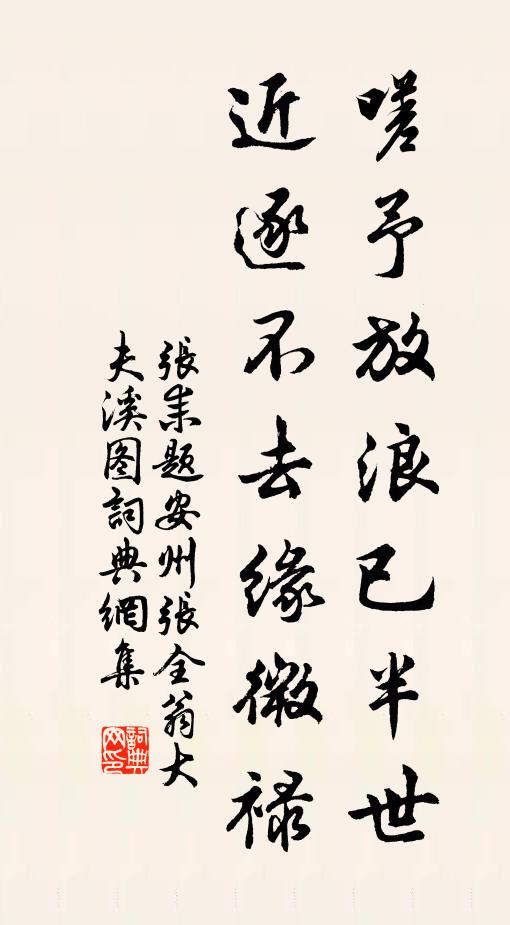 嗟予放浪已半世
近逐不去缘微禄
張耒题安州張全翁大
夫溪图詞典網集
詞典
网印